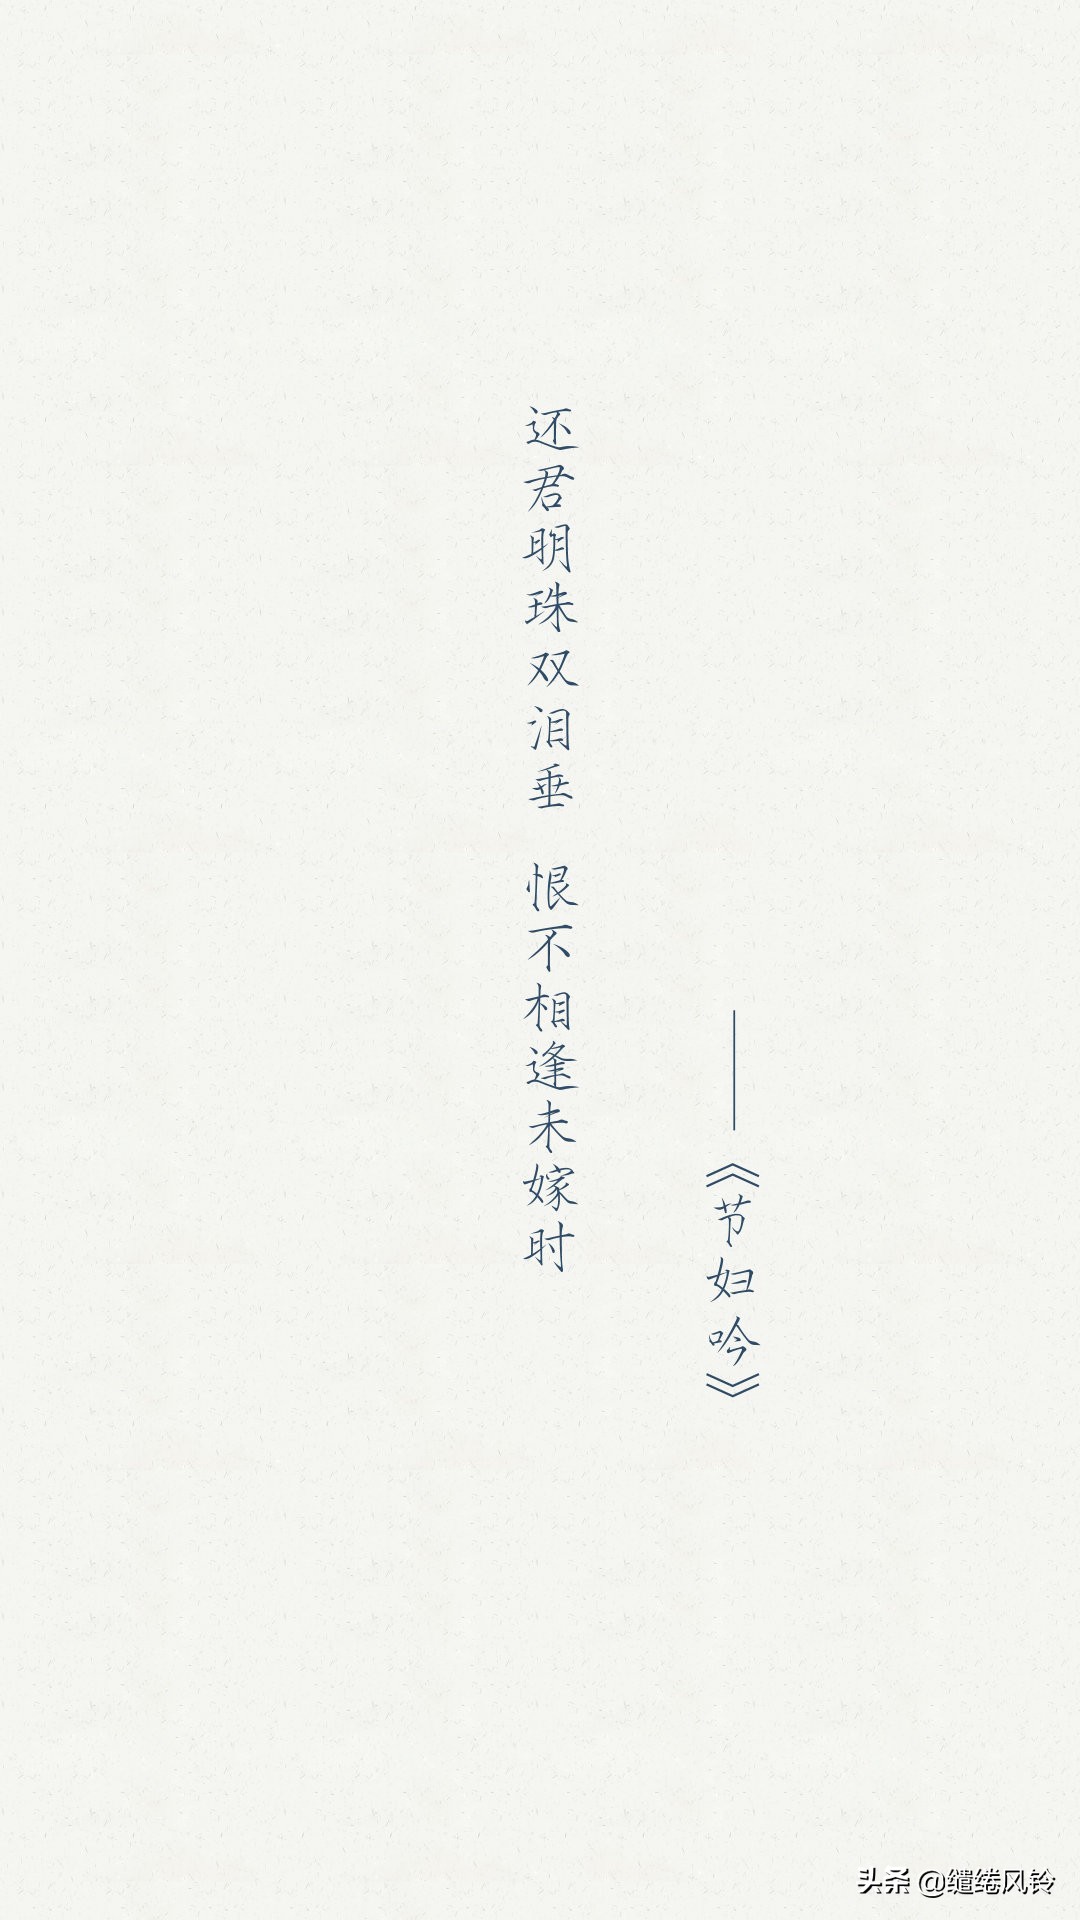 还君明珠双泪垂 恨不相逢未嫁时
——《节妇吟》
头条 @缱绻风铃